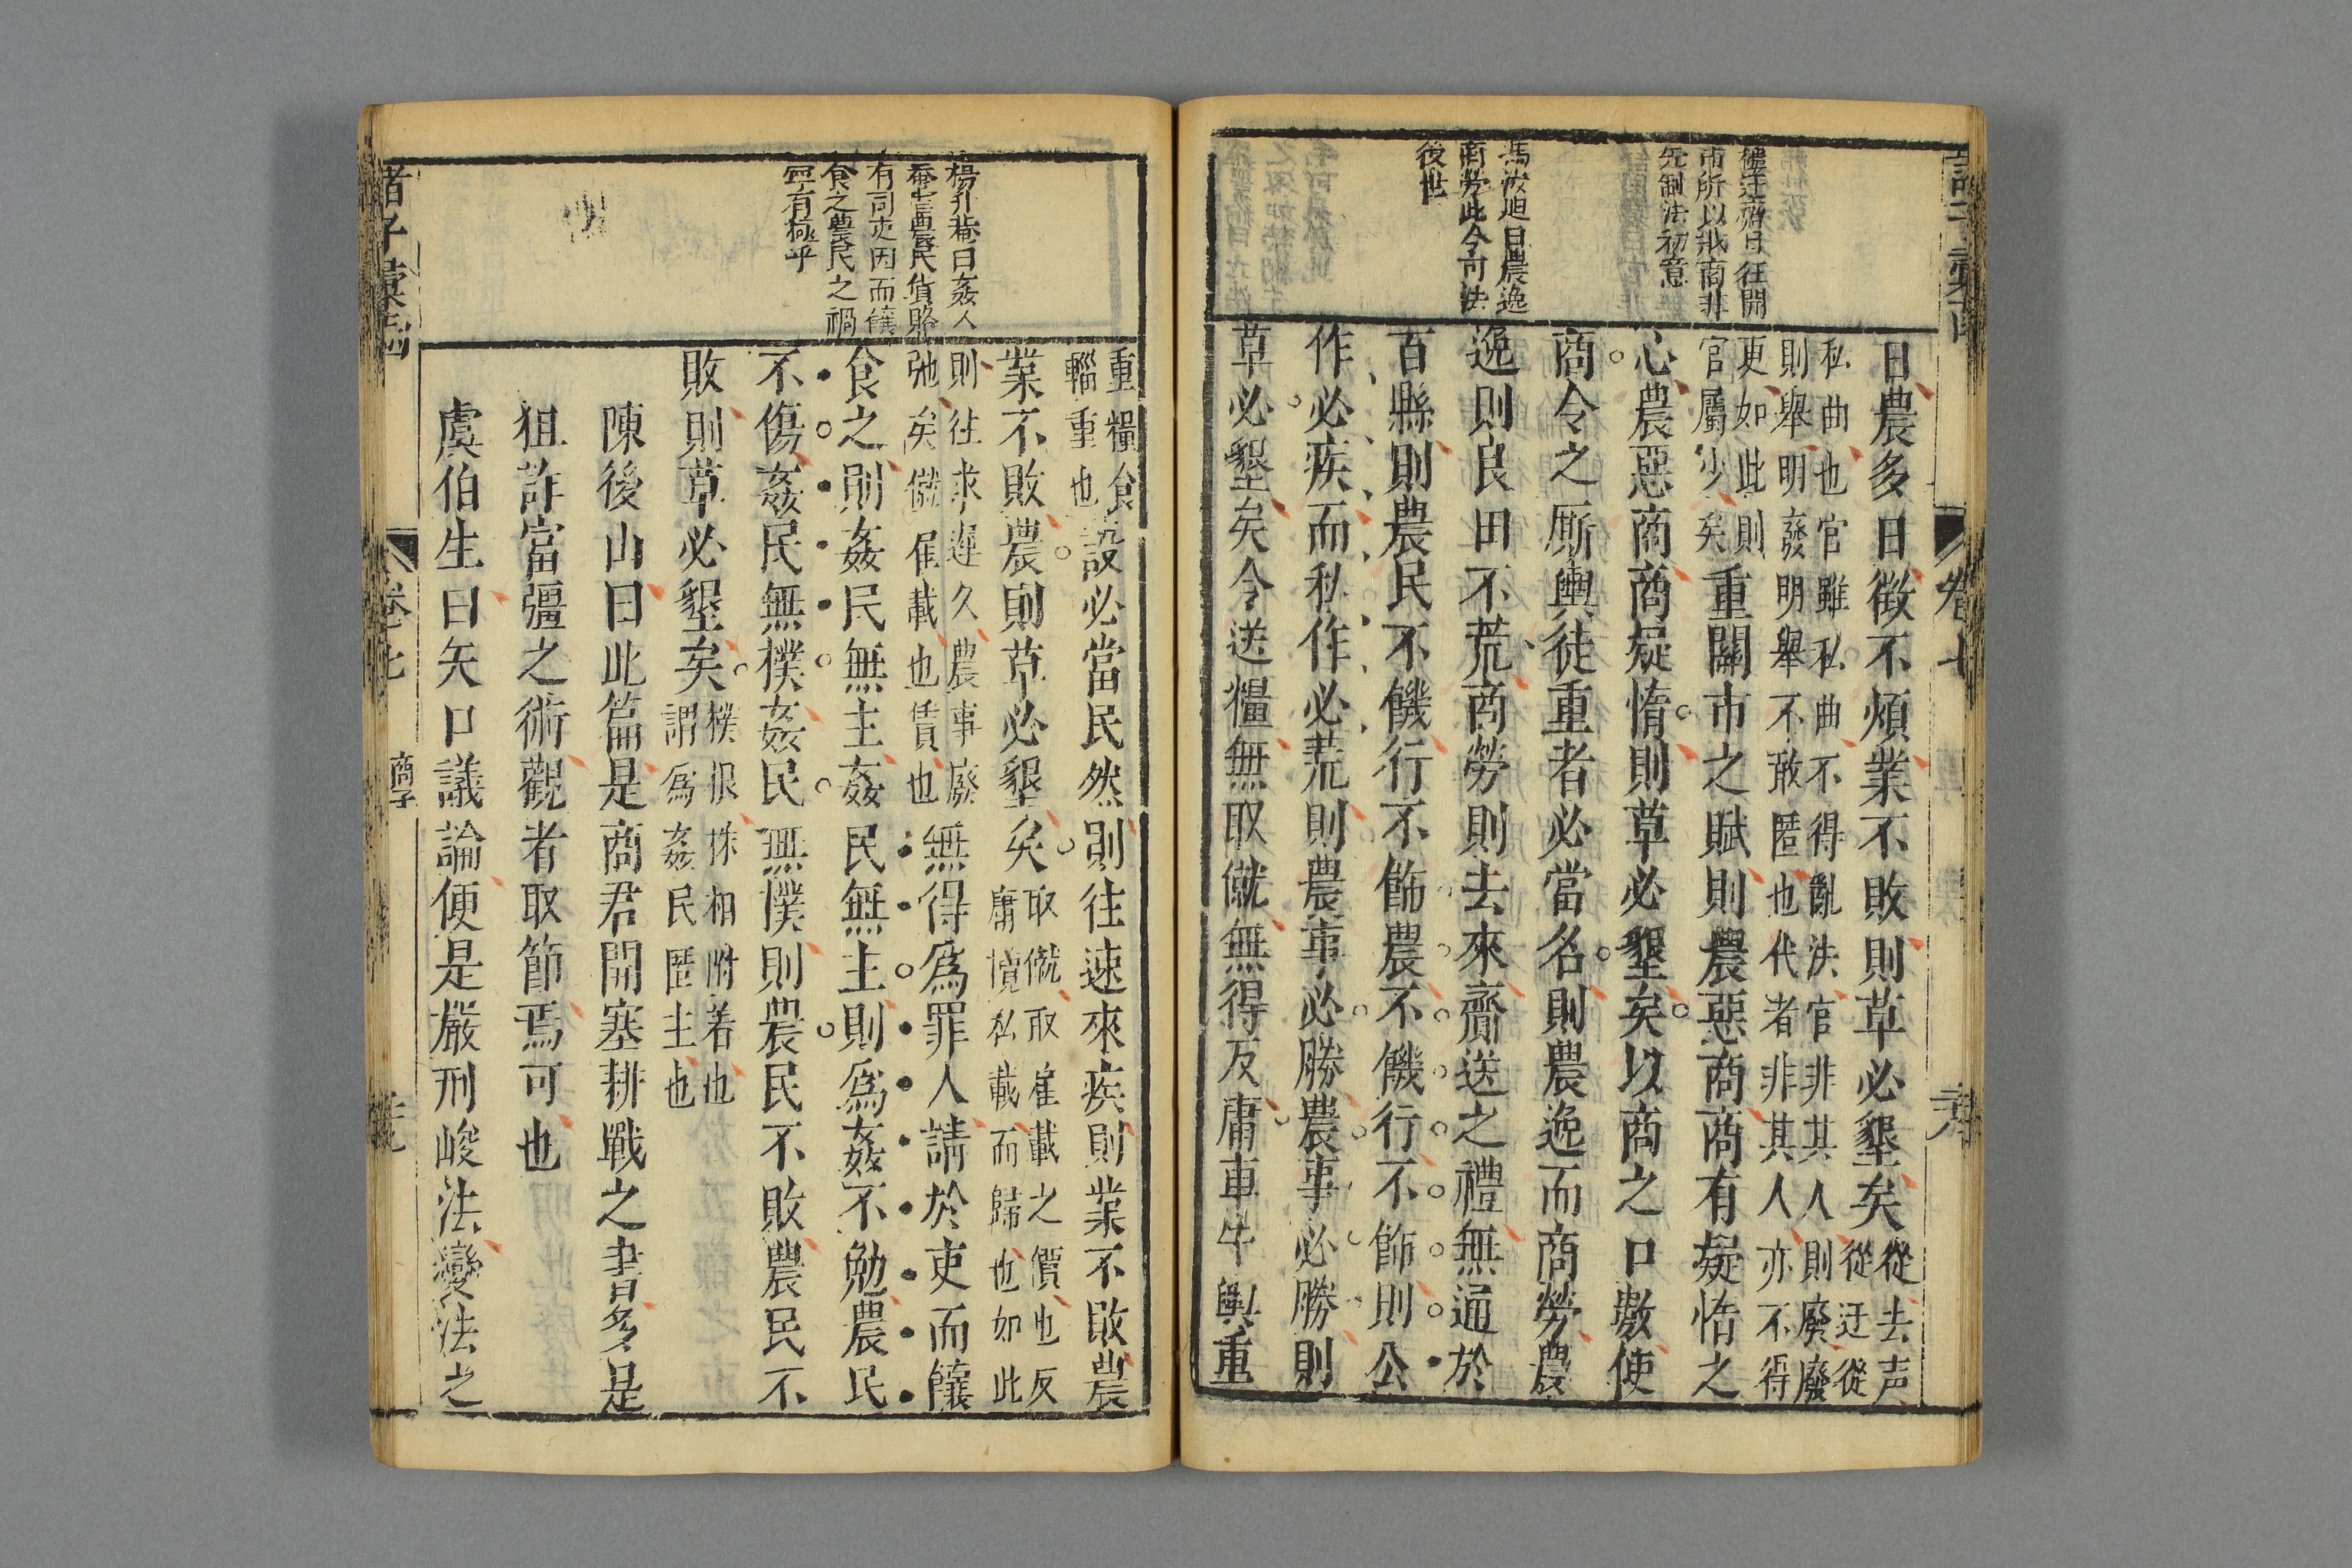 日農多日徵不煩業不敗則草必墾矣從去声從迂從
私曲也官雖私曲不得亂法官非其人則廢廢
則舉明發明舉不敢匿也代者非其人亦不得
更如此則
官屬少矣重關市之賦則農惡商商有疑惰之
心農惡商商疑惰則草必墾矣以商之口數使
商令之厮輿徒重者必當名則農逸而商勞農
逸則良田不荒商勞則去來齎送之禮無通於
百縣則農民不饑行不飾農不饑行不飾則公
作必疾而私作必荒則農事必勝農事必勝則
草必墾矣令送糧無取僦無得反庸車牛輿重
曰往開
市所以抑商非
先制法初意
曰農逸
商勞此令可法
後世
卷七
重糧食
輜重也設必當民然則往速來疾則業不敗農
業不敗農則草必墾矣取僦取雇載之價也反
庸憤私載而歸也如此
則往求遲久農事廢
弛矣僦雇載也賃也無得爲罪人請於吏而饟
食之則姦民無主姦民無主則爲姦不勉農民
不傷姦民無樸姦民無樸則農民不敗農民不
敗則草必墾矣樸根株相附着也
謂爲姦民匿主也
陳後山曰此篇是商君開塞耕戰之書多是
狙詐富彊之術觀者取節焉可也
虞伯生曰矢口議論便是嚴刑峻法變法之
楊升菴曰姦人
蚕食農民貨賂
有司吏因而饟
食之農民之禍
寧有極乎
諸子彙函
卷七
商子